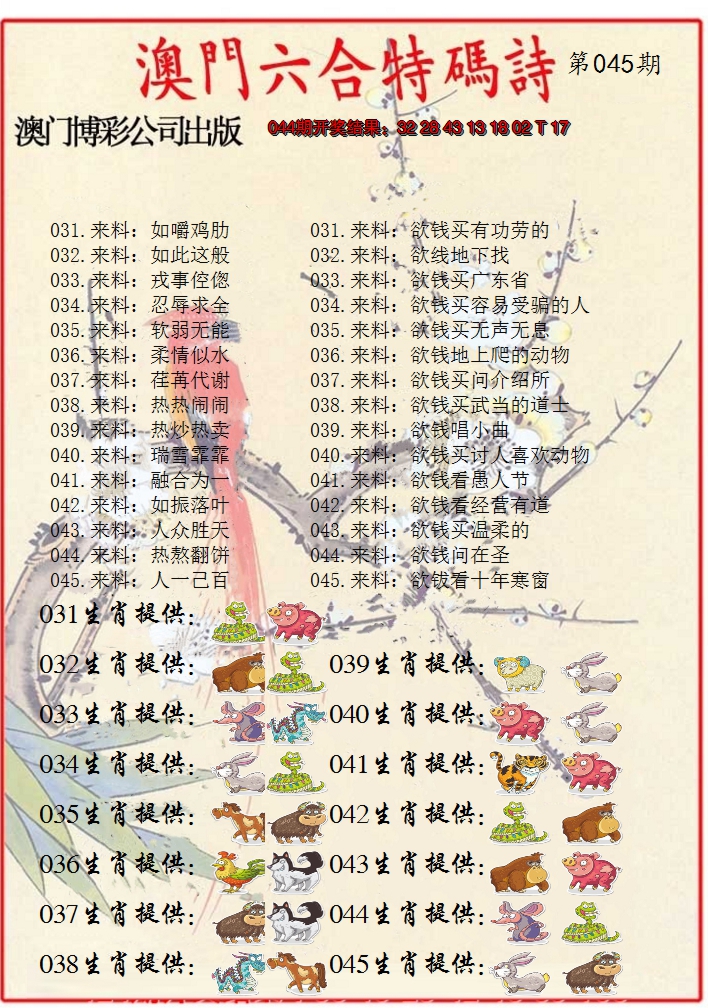 澳門六合特碼詩 第045期
澳门博彩公司出版 044期开奖结果：32 28 43 13 18 02 T 17
031.来料：如嚼鸡肋 031.来料：欲钱买有功劳的
032.来料：如此这般 032.来料：欲线地下找
033.来料：戎事倥偬 033.来料：欲钱买广东省
034.来料：忍辱求全 034.来料：欲钱买容易受骗的人
035.来料：软弱无能 035.来料：欲钱买无声无息
036.来料：柔情似水 036.来料：欲钱地上爬的动物
037.来料：荏苒代谢 037.来料：欲钱买问介绍所
038.来料：热热闹闹 038.来料：欲钱买武当的道士
039.来料：热炒热卖 039.来料：欲钱唱小曲
040.来料：瑞雪霏霏 040.来料：欲钱买讨人喜欢动物
041.来料：融合为一 041.来料：欲钱看愚人节
042.来料：如振落叶 042.来料：欲钱看经营有道
043.来料：人众胜天 043.来料：欲钱买温柔的
044.来料：热熬翻饼 044.来料：欲钱问在圣
045.来料：人一己百 045.来料：欲钹看十年寒窗
031生肖提供：
032生肖提供： 039生肖提供：
033生肖提供： 040生肖提供：
034生肖提供： 041生肖提供：
035生肖提供： 042生肖提供：
036生肖提供： 043生肖提供：
037生肖提供： 044生肖提供：
038生肖提供： 045生肖提供：